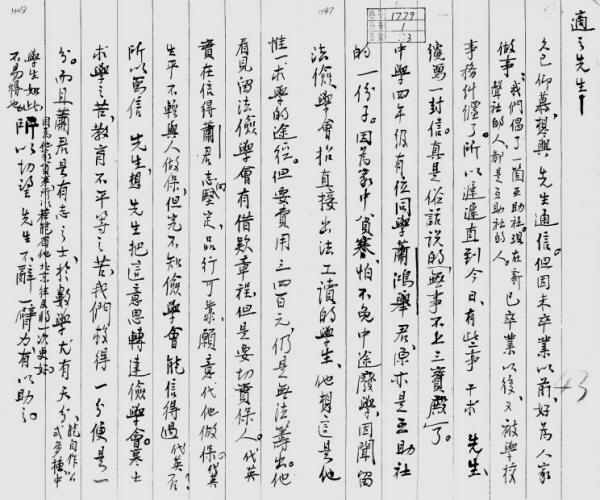 適之先生—
久已仰慕，想與　先生通信。但因未卒業以前，好為人家
做事，我們倡了一箇互助社，現在新聲社的人都是互助社的人。已卒業以後，又被學校
事務糾纏了。所以遲遲直到今日，有些事干求　先生，
纔寫一封信。真是俗話說的「無事不上三寶殿」了。
中學四年級有位同學蕭鴻舉君，原亦是互助社
的一份子。因為家中貧寒，怕不免中途廢學，因聞留
法儉學會招直接出法工讀的學生，他想這是他
惟一求學的途徑。但要費用三四百元，仍是無法籌出。他
看見留法儉學會有借款章程，但是要切實保人。代英
實在信得蕭君志向堅定，品行可靠，願意代他做保。（代英
生平不輕與人做保，但完不知儉學會能信得過代英否？
所以寫信　先生，想　先生把這意思轉達儉學會。寒士
求學之苦，教育不平等之苦，我們救得一分便是一
分。而且蕭君是有志之士，於數學尤有天分，能自作公式多種，中
學生如此，不易得也。所以切望　先生不辭一臂力，有以助之。
1779
1
3
43
1147